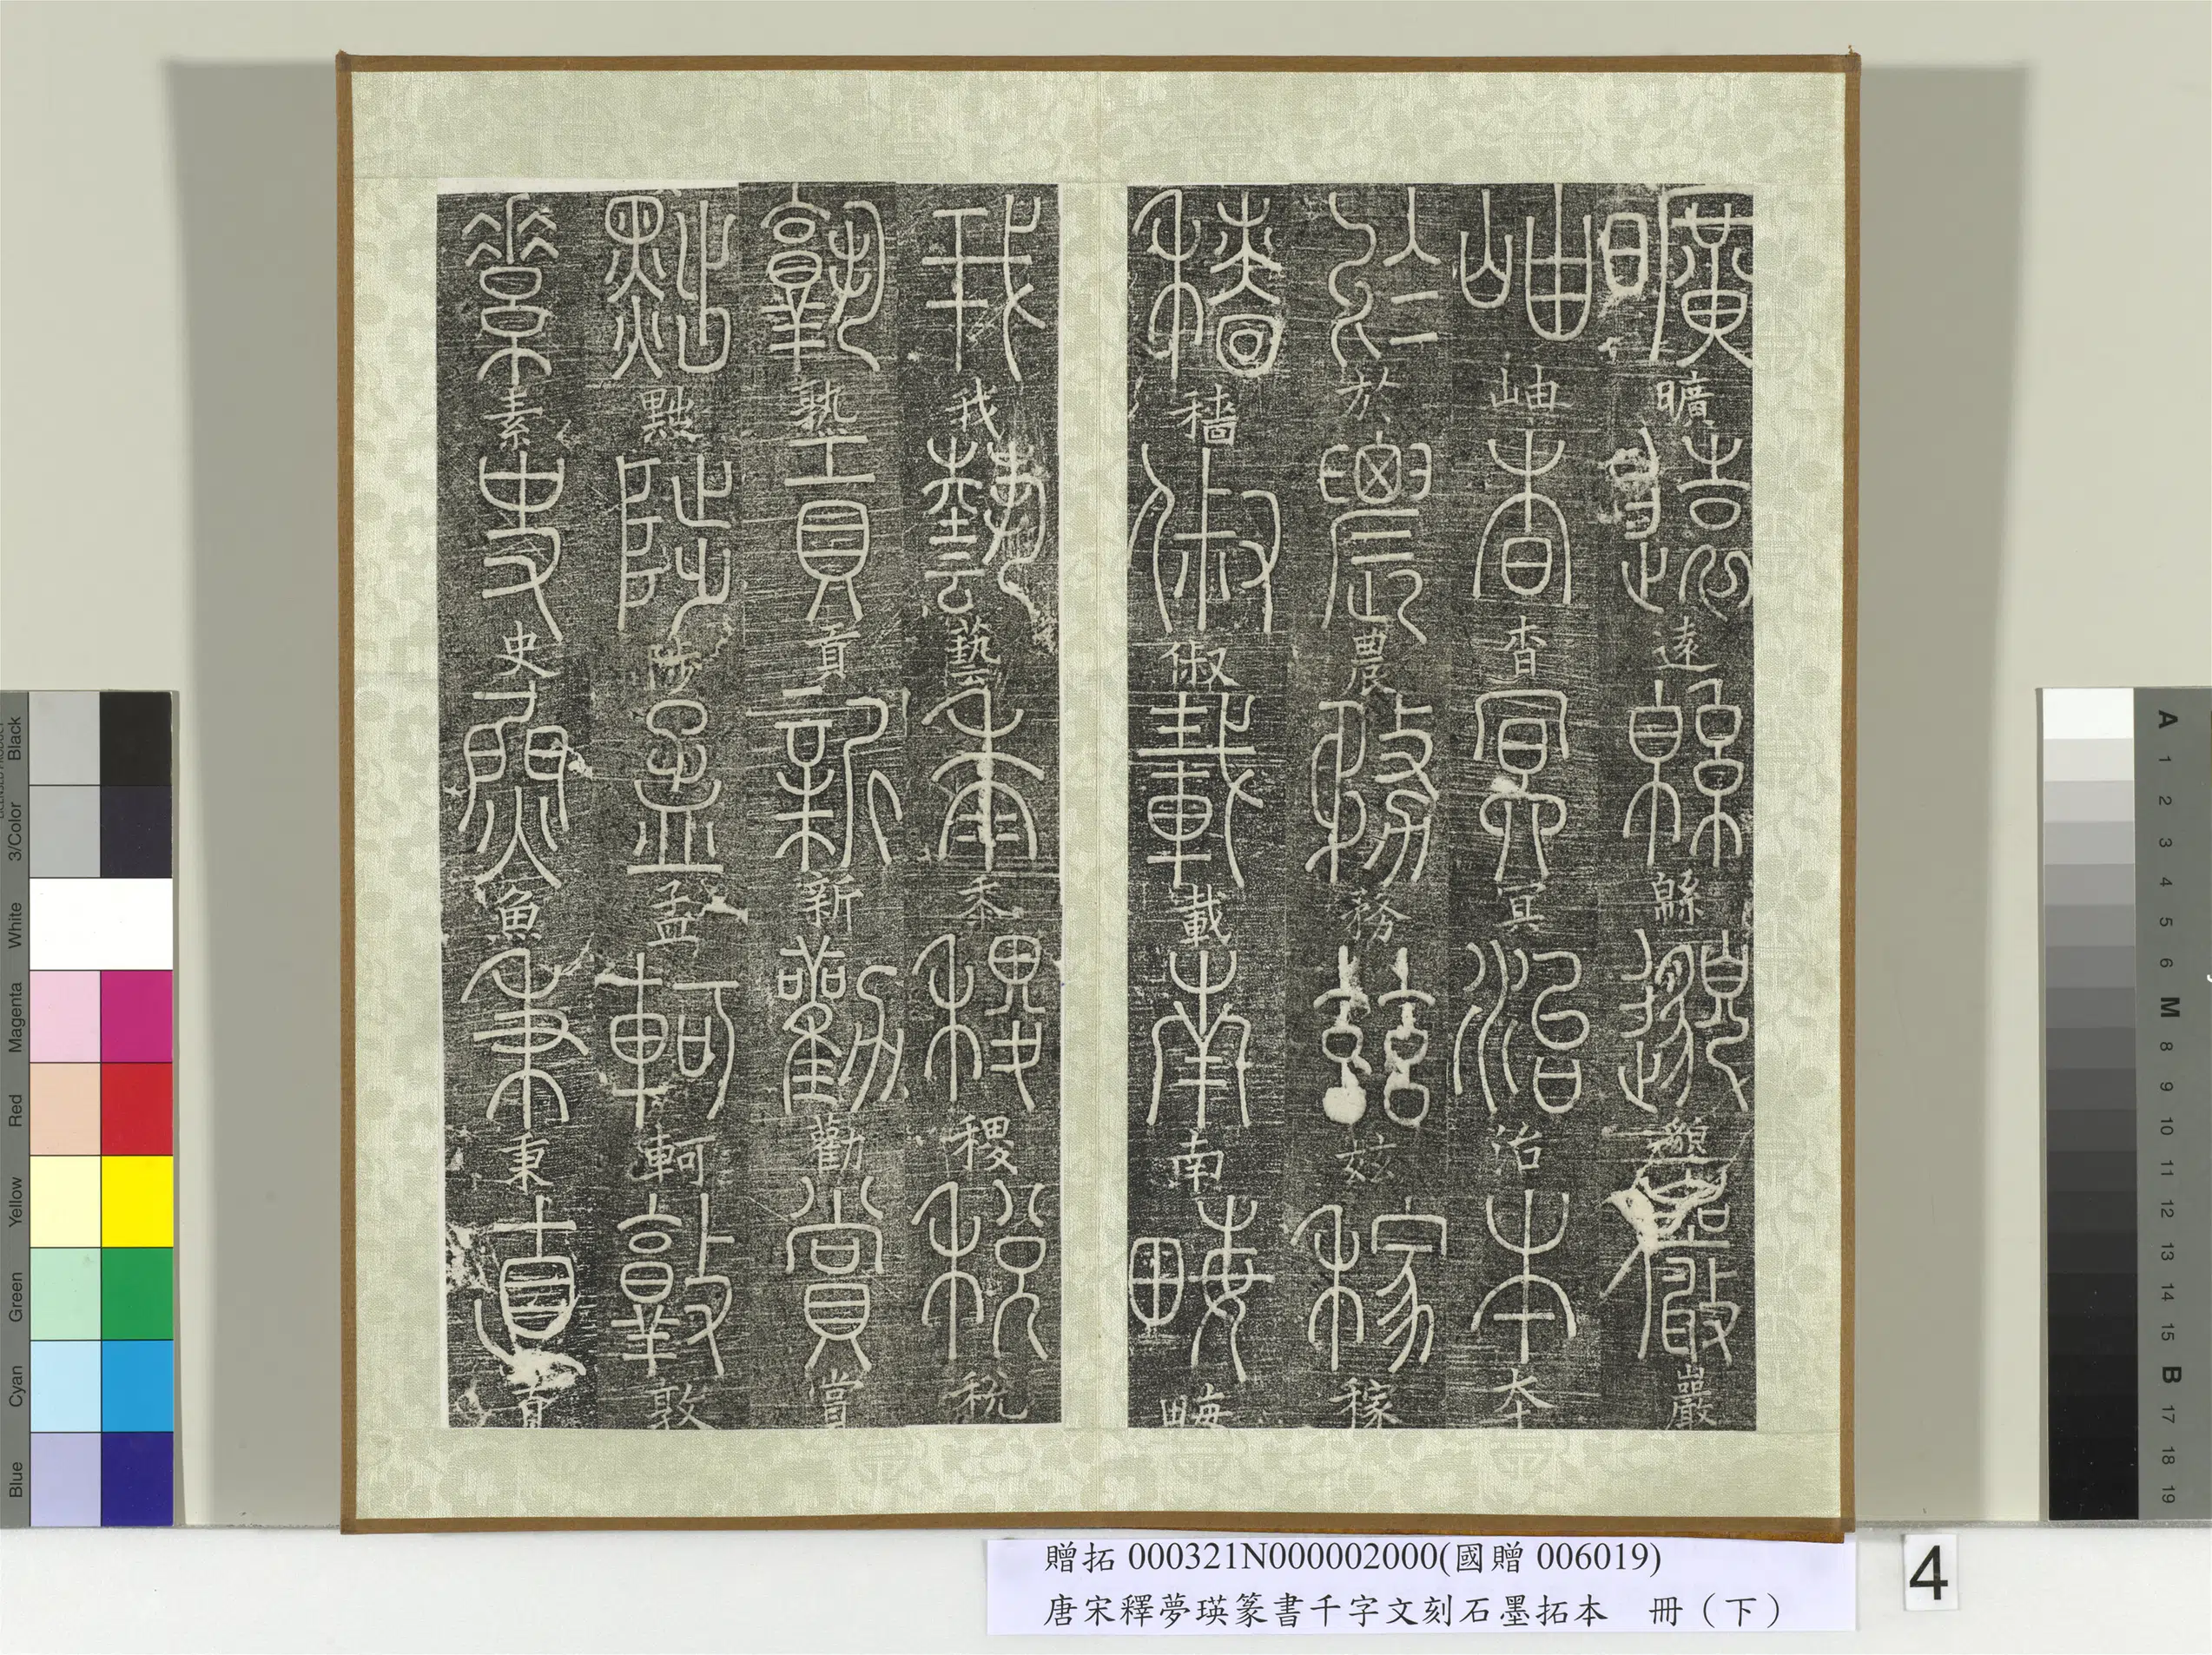 曠曠遠遠緜緜邈邈巖巖
岫岫杳杳冥冥治治本本
於於農農務務茲茲稼稼
穡穡俶俶載載南南畮畮
我我藝藝黍黍稷稷稅稅
孰孰貢貢新新勸勸賞賞
黜黜陟陟孟孟軻軻敦敦
素素史史魚魚秉秉直直
贈拓 000321N000002000(國贈 006019)
唐宋釋夢瑛篆書千字文刻石墨拓本　冊（下）
4
Black
3/Color
White
Magenta
Red
Yellow
Green
Cyan
Blue
A
1
2
3
4
5
6
M
8
9
10
11
12
13
14
15
B
17
18
19